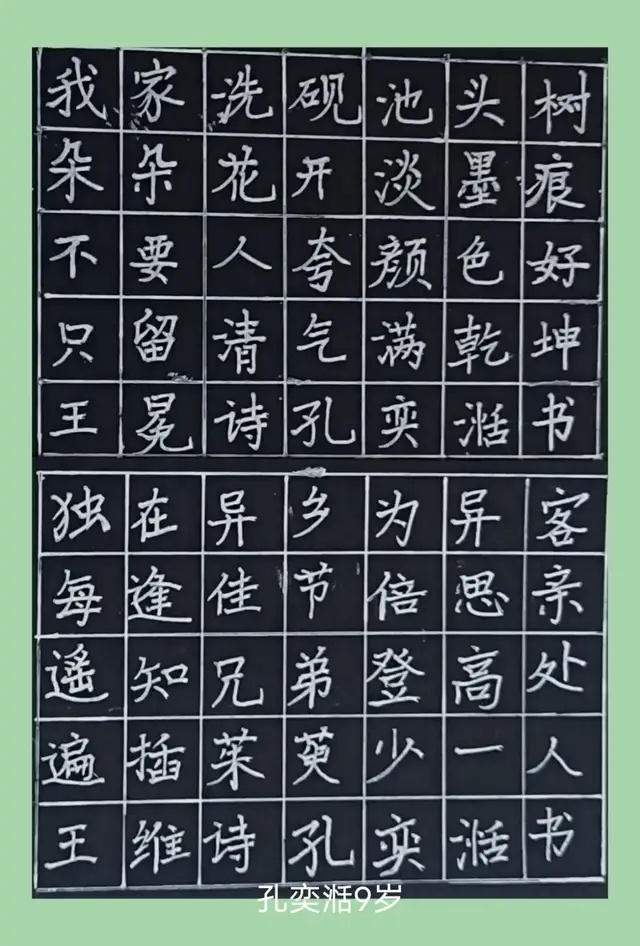 我家洗砚池头树
朵朵花开淡墨痕
不要人夸颜色好
只留清气满乾坤
王冕诗孔奕湉书
独在异乡为异客
每逢佳节倍思亲
遥知兄弟登高处
遍插茱萸少一人
王维诗孔奕湉书
孔奕湉9岁